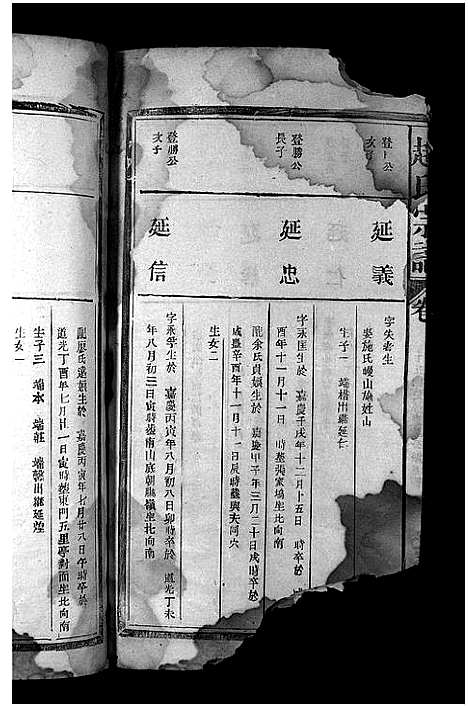 趙氏宗譜 卷
登 公
次子
延義
字先 生
娶施氏 山 姓山
生子二 端楷出繼延仁
登勝公
長子
延忠
字永匡生於 嘉慶壬戌年十二月十五日 時卒於 咸
酉年十一月十一日 時葬張家塢坐北向南
配余氏貞 生於 嘉慶甲子年三月二十日戌時卒於
咸豐辛酉年十一月十二日辰時葬與夫同穴
生女二
登勝公
次子
延信
字永孚生於 嘉慶丙寅年八月初八日卯時卒於 道光丁未
年八月初三日寅時葬南山底朝 嶺坐北向南
配 氏 生於 嘉慶丙寅年七月廿八日午時卒於
道光丁酉年七月廿一日寅時葬東門五里亭對面坐北向南
生子三 端本 端莊 端 出繼延煌
生女一